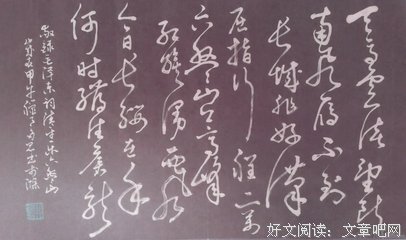 天高云淡望断
南飞雁不到
长城非好汉
屈指行程二万
六盘山上高峰
红旗漫卷西风
今日长缨在手
何时缚住苍龙
敬录毛泽东词清平乐六盘山
甲午
好文阅读：文章吧网